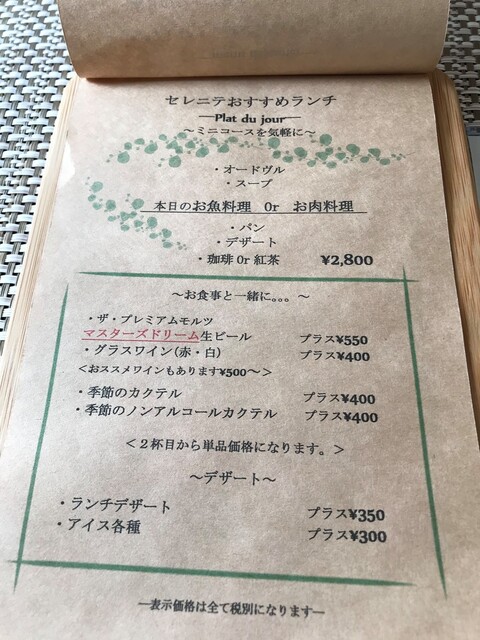 セレニテおすすめランチ
―Plat du jour―
～ミニコースを気軽に～
・オードヴル
・スープ
本日のお魚料理 Or お肉料理
・パン
・デザート
・珈琲 Or 紅茶 ¥2,800
～お食事と一緒に。。。～
・ザ・プレミアムモルツ
マスターズドリーム生ビール プラス¥550
・グラスワイン(赤・白) プラス¥400
＜おススメワインもあります¥500～＞
・季節のカクテル プラス¥400
・季節のノンアルコールカクテル プラス¥400
＜２杯目から単品価格になります。＞
～デザート～
・ランチデザート プラス¥350
・アイス各種 プラス¥300
―表示価格は全て税別になります―